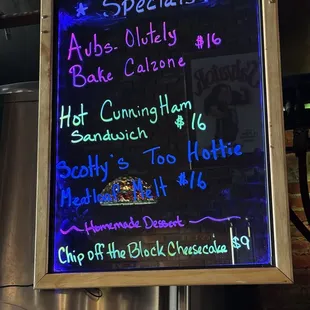 * Specials
Aubs-Olutely $16
Bake Calzone
Hot CunningHam
Sandwich $16
Scotty's Too Hottie
Meatloaf Melt $16
Homemade Dessert
Chip off the Block Cheesecake $9